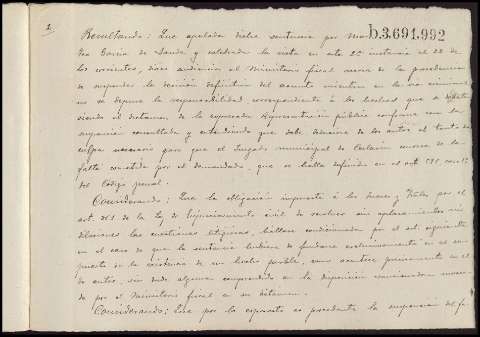 2
b.3.691.992
Resultando: Que apelada dicha sentencia por
García de Sande y celebrada la vista en esta 2ª instancia el 22 de
los corrientes, dióse audiencia al Ministerio fiscal acerca de la procedencia
de suspender la decisión definitiva del asunto mientras en la vía criminal
no se depura la responsabilidad correspondiente á los hechos que
siendo el dictamen de la expresada Representación pública conforme con la
consultada y entendiendo que debe deducirse de los autos el tanto de
culpa necesario para que el Juzgado municipal de conozca de la
falta cometida por el demandado, que se halla definida en el art.
del Código penal.
Considerando: Que la obligación impuesta á los Jueces y Tribles por el
art. de la Ley de Enjuiciamiento civil de resolver sin aplazamientos ni
dilaciones las cuestiones litigiosas, hállase condicionada por el art. siguiente
en el caso de que la sentencia hubiese de fundarse exclusivamente en el su-
puesto de la existencia de un hecho penable, como acontece precisamente en el
de autos, sin duda alguna comprendido en la disposición mencionada
do por el Ministerio fiscal en su dictamen.
Considerando: Que por lo expuesto es procedente la suspensión del fa-